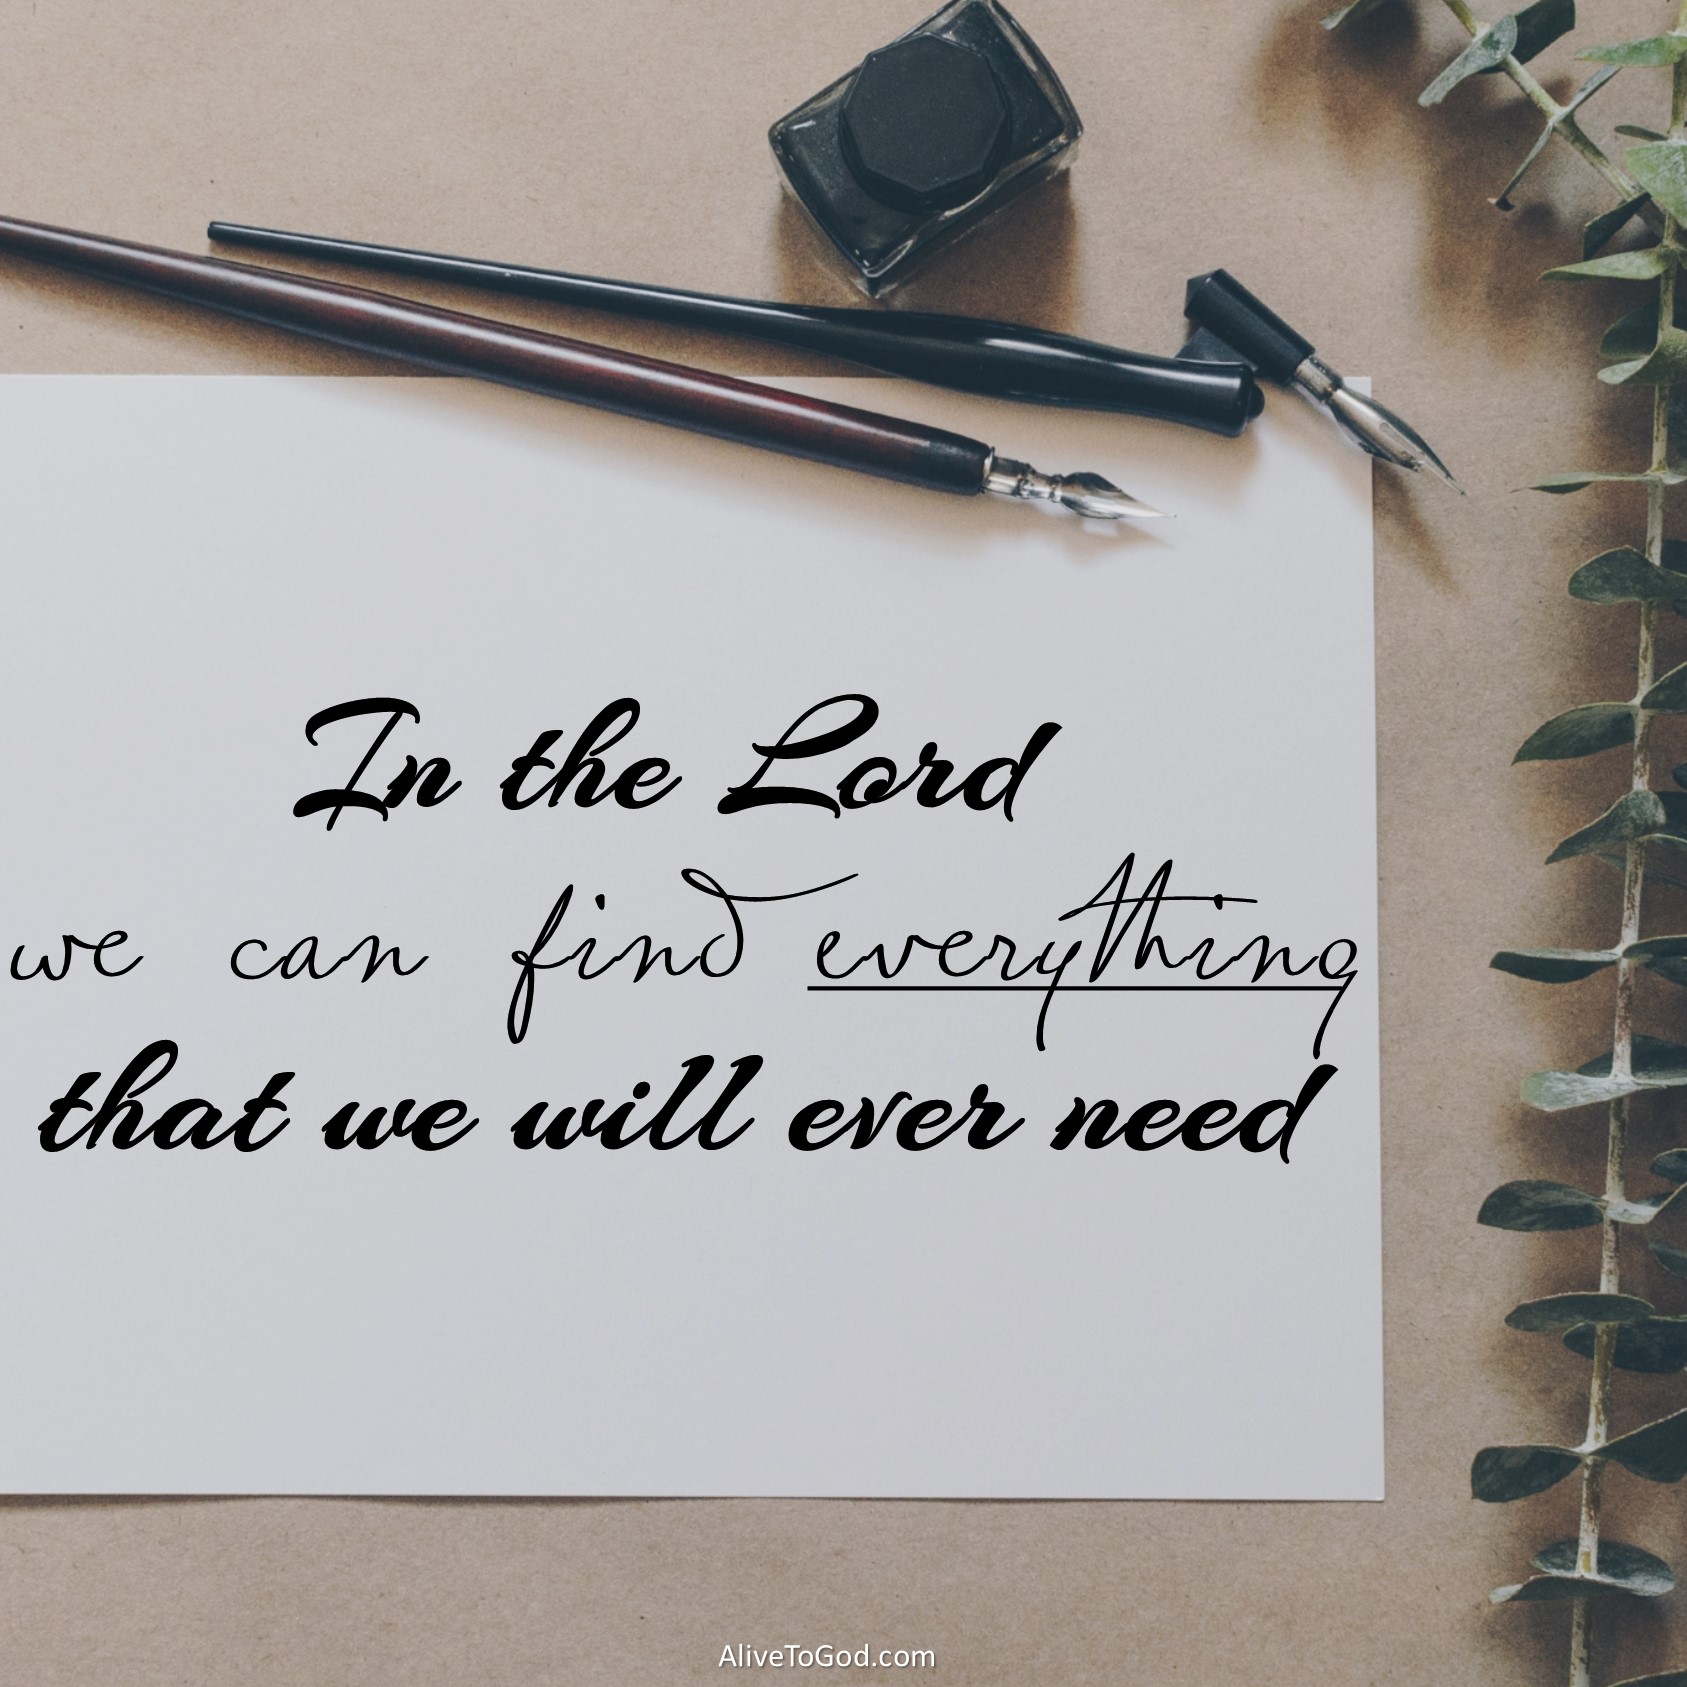 In the Lord
we can find everything
that we will ever need
AliveToGod.com